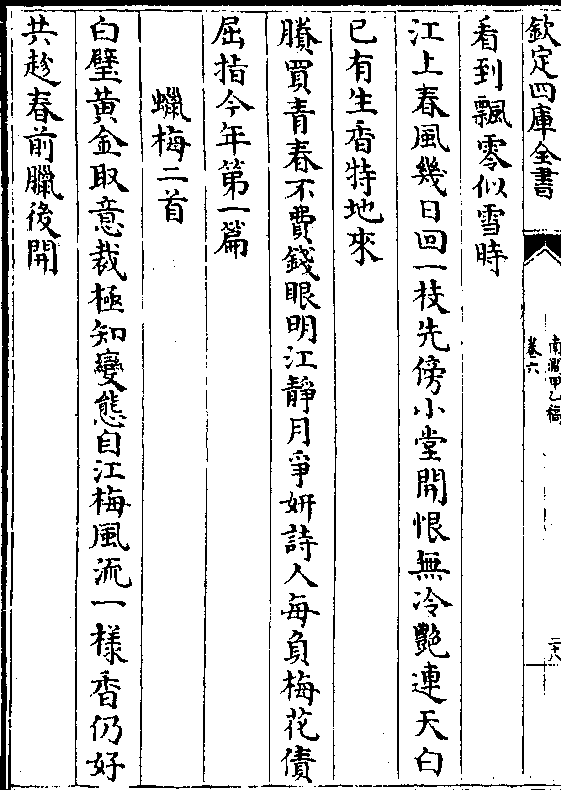 欽定四庫全書
南澗甲乙稿
卷六
二十八
看到飄零似雪時
江上春風幾日回一枝先傍小堂開恨無冷艷連天白
已有生香特地來
賸買青春不費錢眼明江靜月爭妍詩人每負梅花債
屈指今年第一篇
蠟梅二首
白璧黃金取意裁極知變態自江梅風流一樣香仍好
共趁春前臘後開